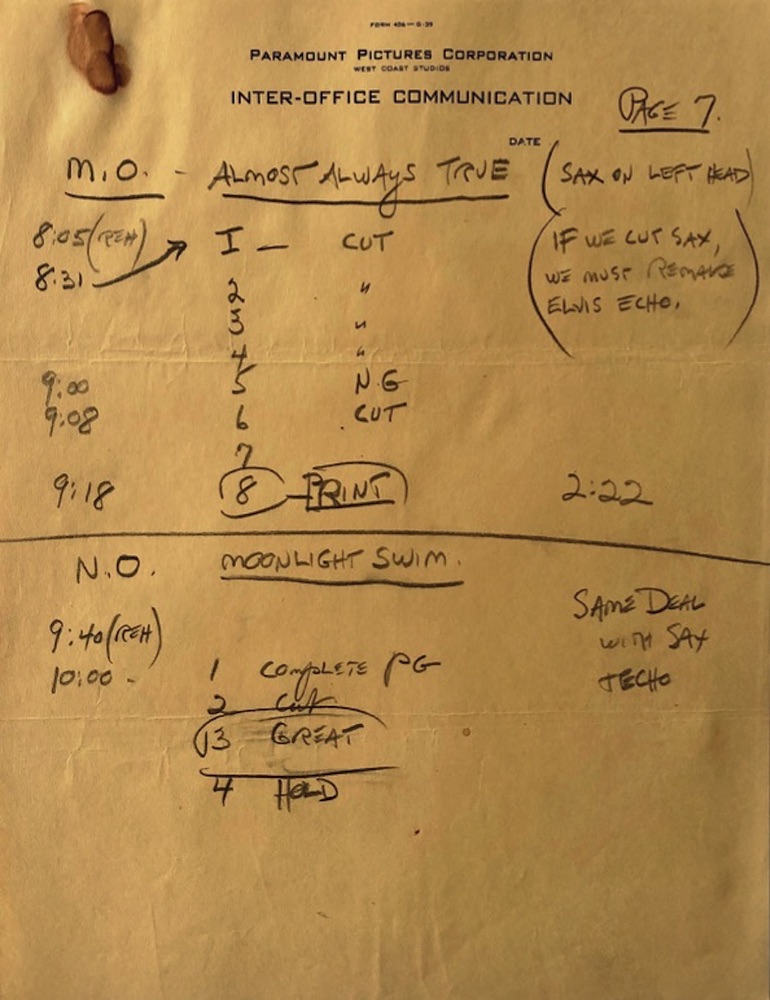 FORM 436—G-39
PARAMOUNT PICTURES CORPORATION
WEST COAST STUDIOS
INTER-OFFICE COMMUNICATION
PAGE 7.
DATE
M.O. - ALMOST ALWAYS TRUE (SAX ON LEFT HEAD)
8:05 (REH) I — CUT (IF WE CUT SAX,
8:31 WE MUST REMAKE
2 " ELVIS ECHO.)
3 "
4 "
9:00 5 N.G
9:08 6 CUT
7
9:18 8 — PRINT 2:22
N.O. MOONLIGHT SWIM.
SAME DEAL
9:40 (REH) WITH SAX
10:00 - 1 COMPLETE PG + ECHO
2 CUT
3 GREAT
4 HOLD